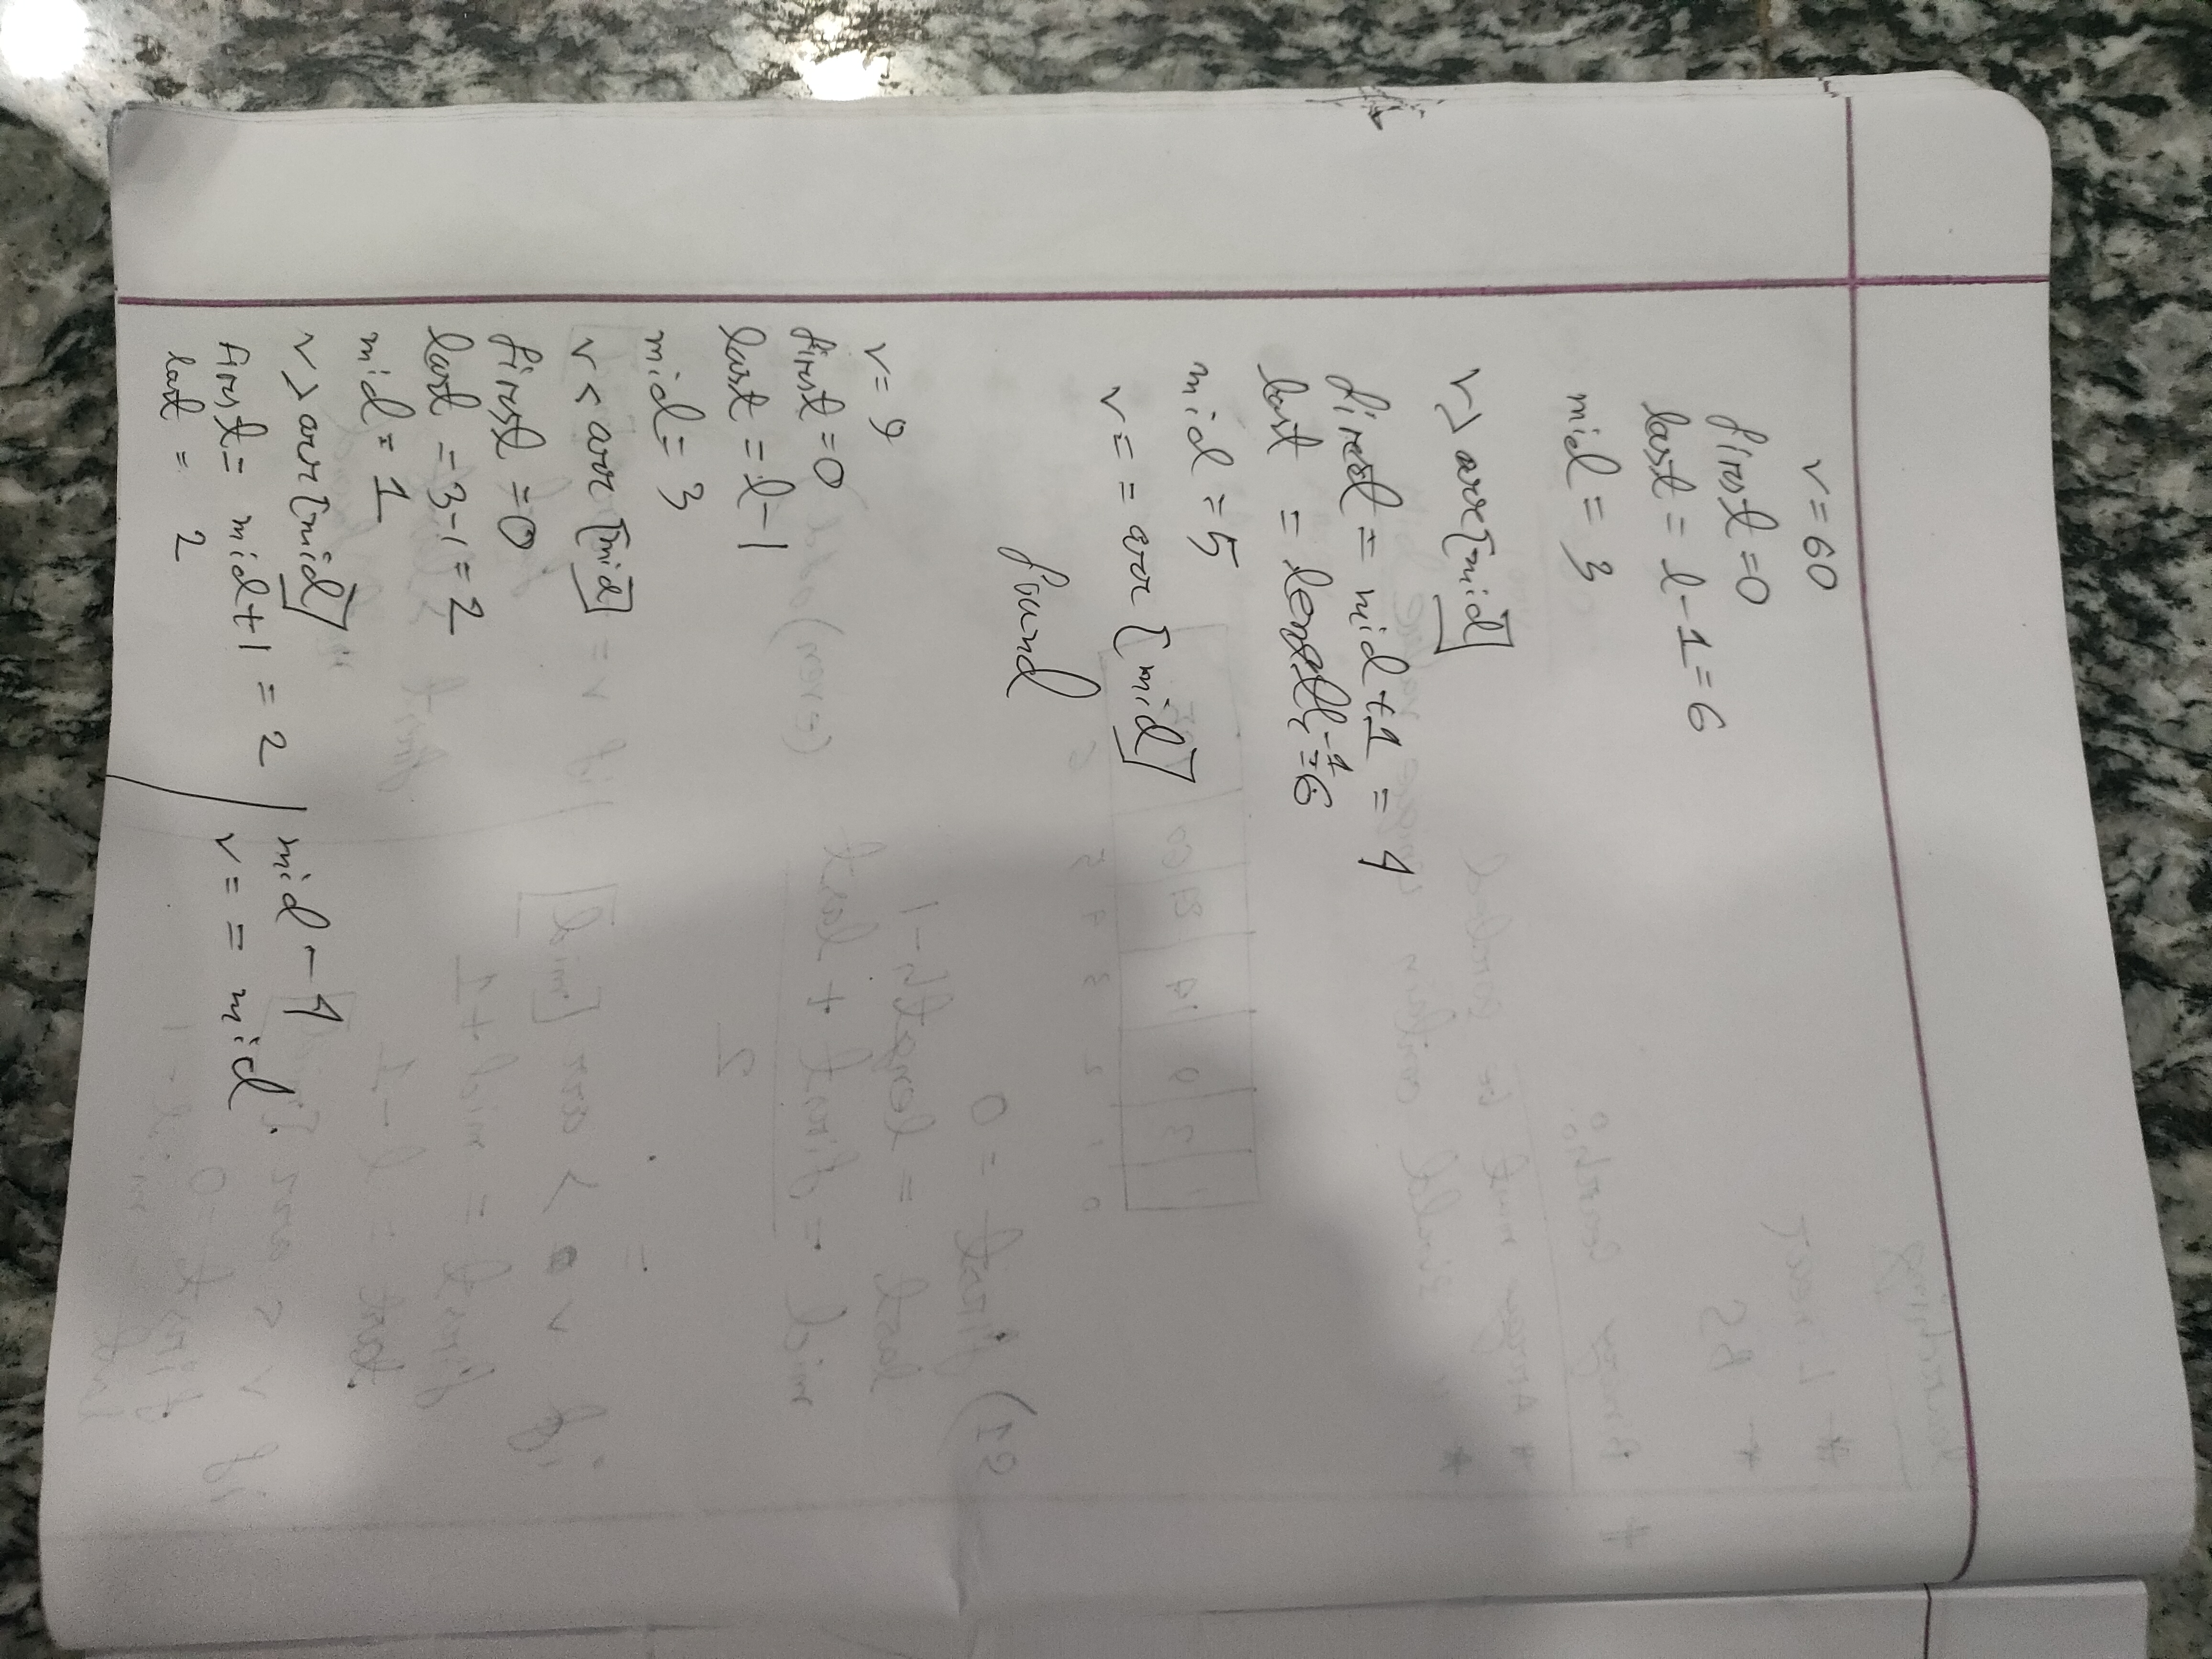 v=60
first=0
last = l-1=6
mid = 3
v> arr[mid]
first = mid+1 = 4
last = length-1=6
mid =5
v== arr [mid]
found
v= 9
first=0
last =l-1
mid= 3
v< arr [mid]
first =0
last =3-1=2
mid= 1
v> arr[mid]
First= mid+1 = 2
last = 2
mid - 4
v== mid